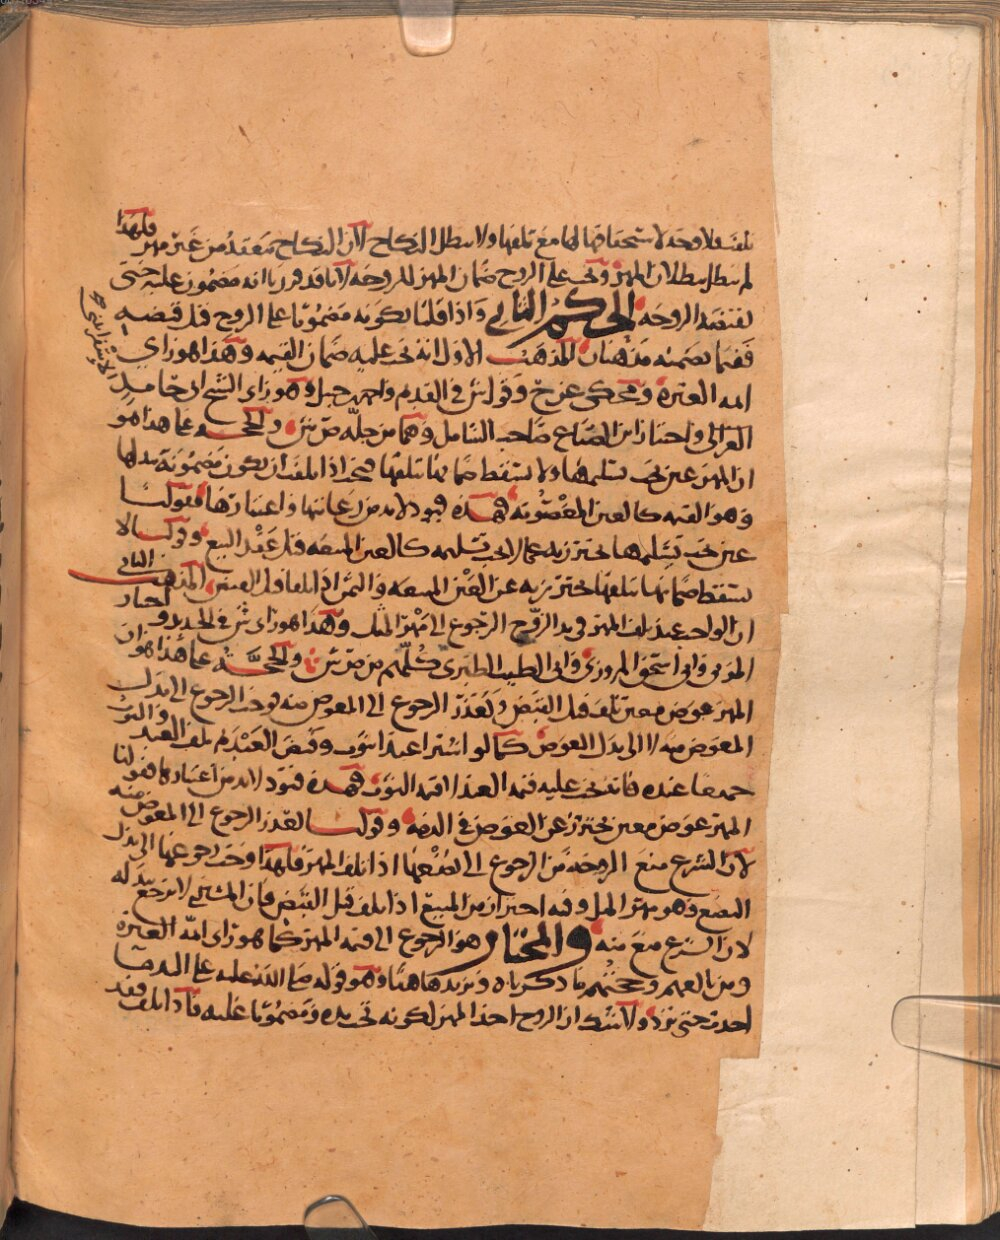 تلفت فلا وجه لاستحقاقها لها مع تلفها ولا يبطل النكاح لأن النكاح ينعقد من غير مهر فلهذا
لم يبطل ببطلان المهر ويجب على الزوج ضمان المهر للزوجة لأنا قد قررنا انه مضمون عليه حتى
تقبضه الزوجه الحكم الثاني واذا قلنا بكونه مضمونا على الزوج قبل قبضه
ففيما يضمنه مذهبان المذهب الاول انه يجب عليه ضمان القيمه وهذا هو راي
ائمه العترة ومحكي عن ح وقول ش في القديم واحمد بن حنبل وهو راي الشيخ ابي حامد
الغزالي واختيار ابن الصباغ صاحب الشامل وهما من جلة صش والحجه على هذا هو
ان المهر عين يجب تسليمها ولا يسقط ضمانها بتلفها فيجب اذا تلفت ان يكون مضمونة ببدلها
وهو القيمه كالعين المغصوبة فهذه قيود لا بد من رعايتها واعتبارها فقولنا
عين يجب تسليمها يحترز به عما لا يجب تسليمه كالعين المبيعه قبل عقد البيع وقولنا لا
يسقط ضمانها بتلفها يحترز به عن العين المبيعه والثمن اذا تلفا قبل القبض المذهب الثاني
ان الواجب عند تلف المهر في يد الزوج الرجوع الى مهر المثل وهذا هو راي ش في الجديد واختيار
المزني وابي اسحق المروزي وابي الطيب الطبري كلهم من صش والحجه على هذا هو ان
المهر عوض معين تلف قبل القبض وتعذر الرجوع الى المعوض منه فوجب الرجوع الى بدل
المعوض منه لا الى بدل العوض كما لو اشترا عبدا بثوب وقبض العبد ثم تلف العبد والثوب
جميعا عنده فانه يجب عليه قيمه العبد لا قيمه الثوب فهذه قيود لا بد من اعتبارها فقولنا
المهر عوض معين يحترز عن العوض في الذمه وقولنا تعذر الرجوع الى المعوض منه
لان الشرع منع الزوجه من الرجوع الى بضعها اذا تلف المهر فلهذا وجب رجوعها الى بدل
البضع وهو مهر المثل وفيه احتراز من المبيع اذا تلف قبل القبض فان المشتري لا يرجع ببدله
لان الشرع منع منه والمختار هو الرجوع الى قيمه المهر كما هو راي ائمة العترة
ومن تابعهم وحجتهم ما ذكرناه ونزيد هاهنا وهو قوله صلى الله عليه على اليد ما
اخذت حتى ترد ولا شك ان الزوج اخذ المهر لكونه في يده ومضمونا عليه فاذا تلف فقد
الاسفرائيني